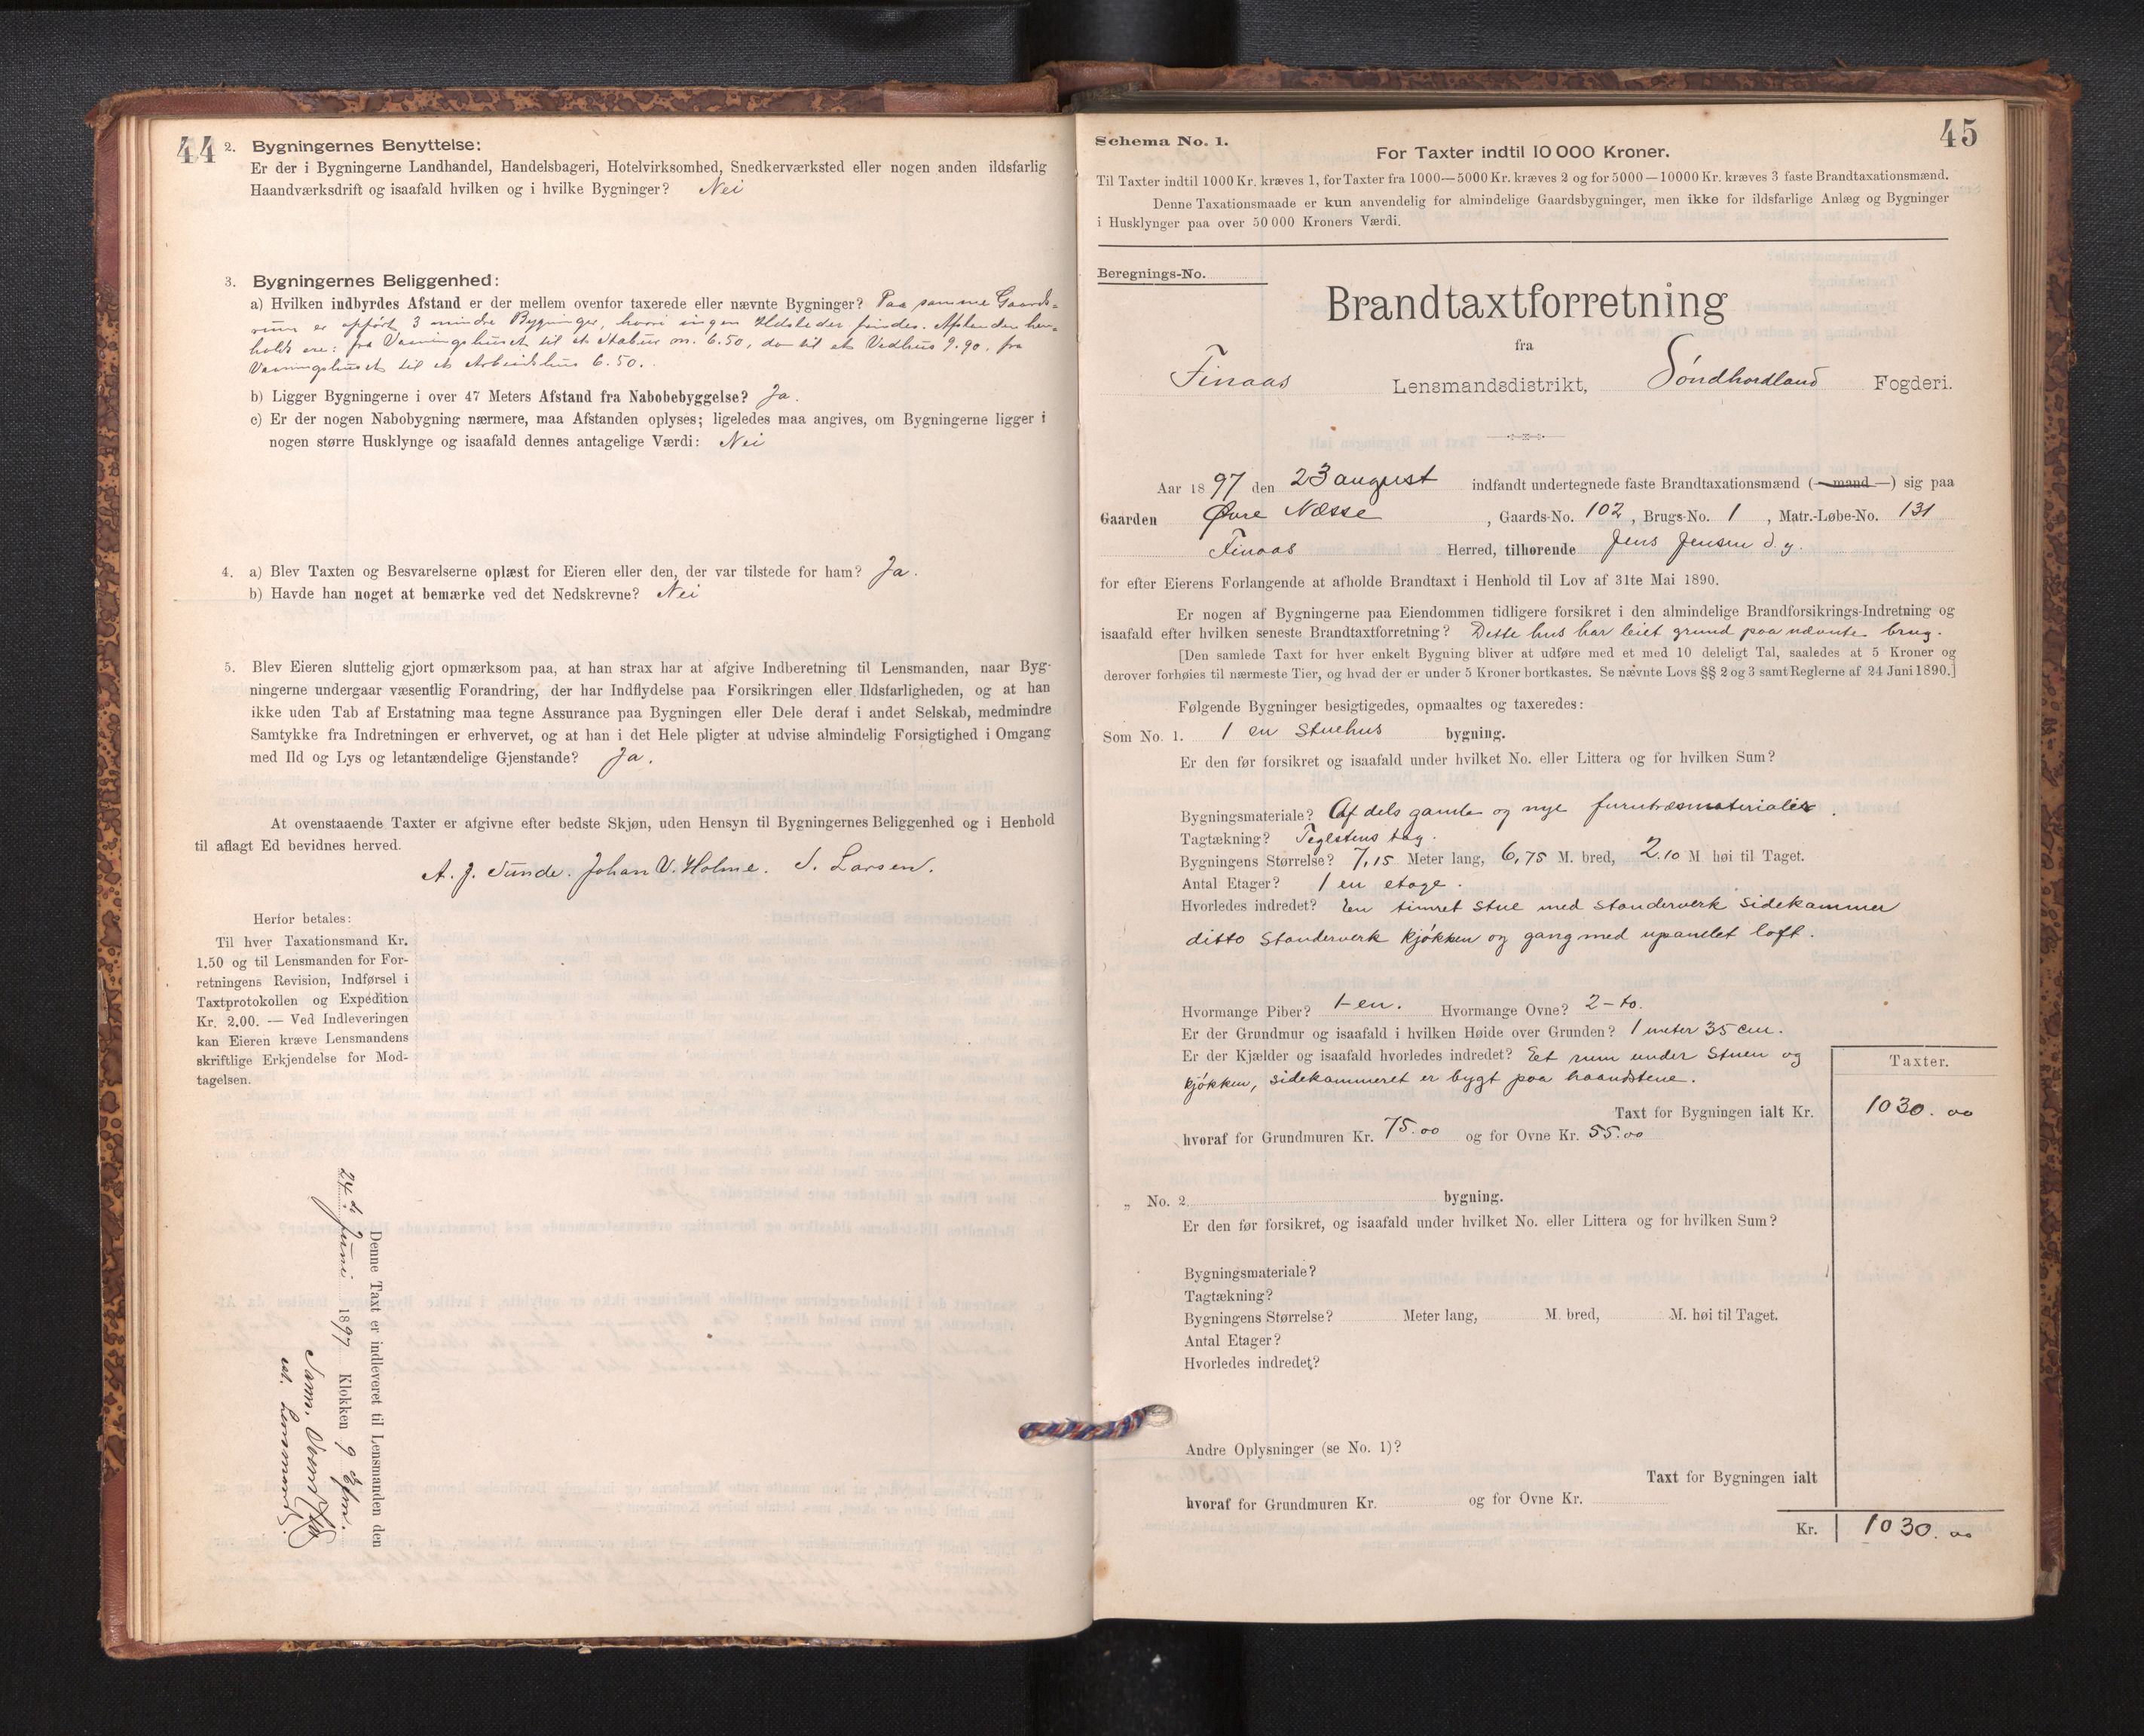 44
2. Bygningernes Benyttelse:
Er der i Bygningerne Landhandel, Handelsbageri, Hotelvirksomhed, Snedkerværksted eller nogen anden ildsfarlig
Haandværksdrift og isaafald hvilken og i hvilke Bygninger? Nei
3. Bygningernes Beliggenhed:
a) Hvilken indbyrdes Afstand er der mellem ovenfor taxerede eller nævnte Bygninger? Paa samme Gaards-
rum er opført 3 mindre Bygninger, hvori ingen Ildsteder findes. Afstanden hen-
holds ere: fra Vaaningshuset til et Stabur m. 6.50, do til et Vedhus 9.90, fra
Vaaningshuset til et Arbeidshus 6.50.
b) Ligger Bygningerne i over 47 Meters Afstand fra Nabobebyggelse? Ja.
c) Er der nogen Nabobygning nærmere, maa Afstanden oplyses; ligeledes maa angives, om Bygningerne ligger i
nogen større Husklynge og isaafald dennes antagelige Værdi: Nei
4. a) Blev Taxten og Besvarelserne oplæst for Eieren eller den, der var tilstede for ham? Ja.
b) Havde han noget at bemærke ved det Nedskrevne? Nei
5. Blev Eieren sluttelig gjort opmærksom paa, at han strax har at afgive Indberetning til Lensmanden, naar Byg-
ningerne undergaar væsentlig Forandring, der har Indflydelse paa Forsikringen eller Ildsfarligheden, og at han
ikke uden Tab af Erstatning maa tegne Assurance paa Bygningen eller Dele deraf i andet Selskab, medmindre
Samtykke fra Indretningen er erhvervet, og at han i det Hele pligter at udvise almindelig Forsigtighed i Omgang
med Ild og Lys og letantændelige Gjenstande? Ja.
At ovenstaaende Taxter er afgivne efter bedste Skjøn, uden Hensyn til Bygningernes Beliggenhed og i Henhold
til aflagt Ed bevidnes herved.
A. J. Tunde. Johan V. Holme. S. Larsen.
Herfor betales:
Til hver Taxationsmand Kr.
1.50 og til Lensmanden for For-
retningens Revision, Indførsel i
Taxtprotokollen og Expedition
Kr. 2.00. — Ved Indleveringen
kan Eieren kræve Lensmandens
skriftlige Erkjendelse for Mod-
tagelsen.
Denne Taxt er indleveret til Lensmanden den
24de Juni 1897 Klokken 9 Efm.
Lensmand.
45
Schema No. 1.
For Taxter indtil 10 000 Kroner.
Til Taxter indtil 1000 Kr. kræves 1, for Taxter fra 1000—5000 Kr. kræves 2 og for 5000—10000 Kr. kræves 3 faste Brandtaxationsmænd.
Denne Taxationsmaade er kun anvendelig for almindelige Gaardsbygninger, men ikke for ildsfarlige Anlæg og Bygninger
i Husklynger paa over 50 000 Kroners Værdi.
Beregnings-No.
Brandtaxtforretning
fra
Finaas Lensmandsdistrikt, Søndhordland Fogderi.
Aar 1897 den 23 august indfandt undertegnede faste Brandtaxationsmænd (—mand—) sig paa
Gaarden Øvre Næsse, Gaards-No. 102, Brugs-No. 1, Matr.-Løbe-No. 131
Finaas Herred, tilhørende Jens Jensen d. y.
for efter Eierens Forlangende at afholde Brandtaxt i Henhold til Lov af 31te Mai 1890.
Er nogen af Bygningerne paa Eiendommen tidligere forsikret i den almindelige Brandforsikrings-Indretning og
isaafald efter hvilken seneste Brandtaxtforretning? Dette hus har leiet grund paa nævnte brug.
[Den samlede Taxt for hver enkelt Bygning bliver at udføre med et med 10 deleligt Tal, saaledes at 5 Kroner og
derover forhøies til nærmeste Tier, og hvad der er under 5 Kroner bortkastes. Se nævnte Lovs §§ 2 og 3 samt Reglerne af 24 Juni 1890.]
Følgende Bygninger besigtigedes, opmaaltes og taxeredes:
Som No. 1. 1 en Stuehus bygning.
Er den før forsikret og isaafald under hvilket No. eller Littera og for hvilken Sum?
Bygningsmateriale? Af dels gamle og nye furutræsmaterialier.
Tagtækning? Teglstens tag.
Bygningens Størrelse? 7,15 Meter lang, 6,75 M. bred, 2.10 M høi til Taget.
Antal Etager? 1 en etage.
Hvorledes indredet? En timret stue med standerverk sidekammer
ditto standerverk kjøkken og gang med upanelet loft.
Hvormange Piber? 1-en. Hvormange Ovne? 2-to.
Er der Grundmur og isaafald i hvilken Høide over Grunden? 1 meter 35 cm.
Er der Kjælder og isaafald hvorledes indredet? Et rum under Stuen og
kjøkken, sidekammeret er bygt paa haandstene.
Taxter.
Taxt for Bygningen ialt Kr. 1030.00
hvoraf for Grundmuren Kr. 75.00 og for Ovne Kr. 55.00
„ No. 2 bygning.
Er den før forsikret, og isaafald under hvilket No. eller Littera og for hvilken Sum?
Bygningsmateriale?
Tagtækning?
Bygningens Størrelse? Meter lang, M. bred, M. høi til Taget.
Antal Etager?
Hvorledes indredet?
Andre Oplysninger (se No. 1)?
Taxt for Bygningen ialt
hvoraf for Grundmuren Kr. og for Ovne Kr.
Kr. 1030.00